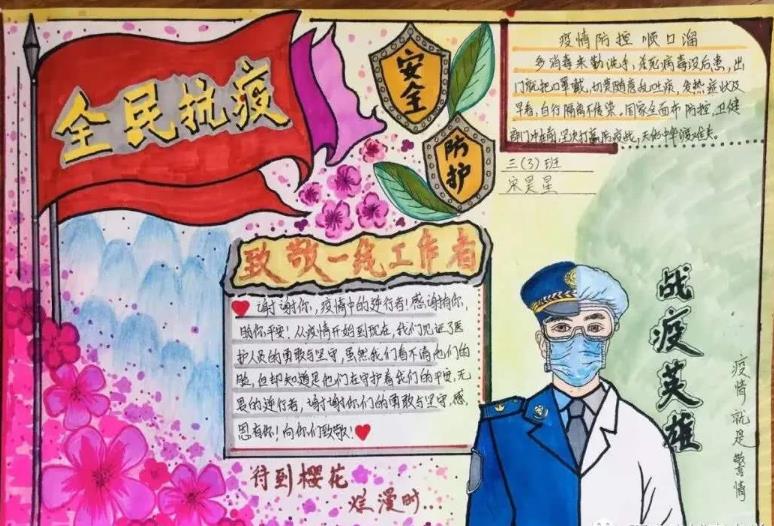 全民抗疫
安全
防护
疫情防控 顺口溜
多消毒来勤洗手,
出
门就把口罩戴,
发热症状及
早看,自行隔离不传染,国家全面布防控,卫健
三(3)班
宋昊星
致敬一线工作者
谢谢你,疫情中的逆行者!感谢有你,
助你平安!从疫情开始到现在,我们见证了医
护人员的勇敢与坚守,虽然我们看不清他们的
脸,但却知道是他们在守护着我们的平安,无
畏的逆行者,谢谢你们的勇敢与坚守,感
恩有你!向你们致敬!
待到樱花
烂漫时...
战疫英雄
疫情就是警情